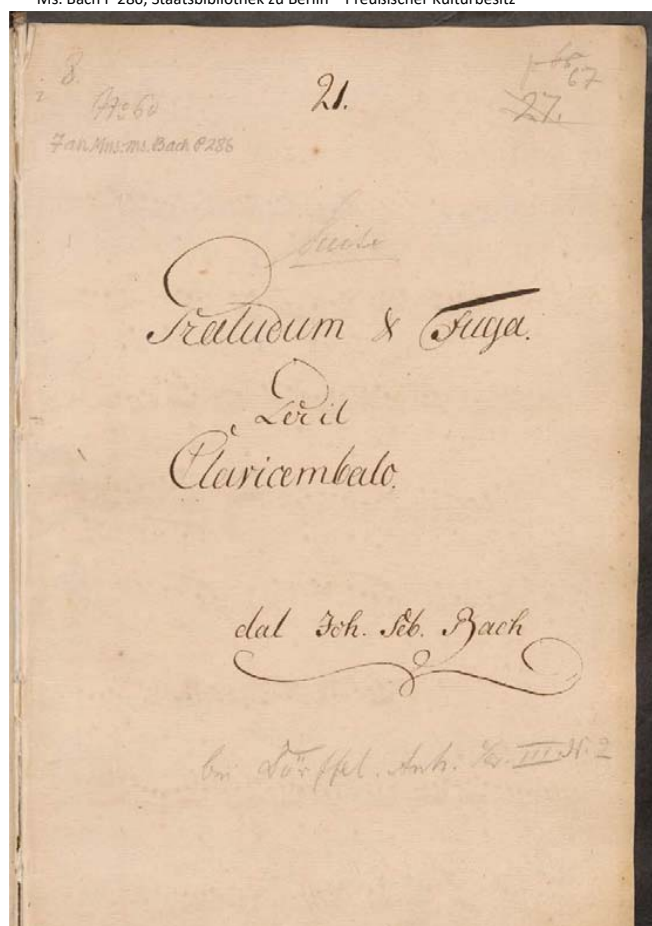 Ms. Bach P 286, Staatsbibliothek zu Berlin – Preußischer Kulturbesitz
8.
21.
67
27.
No 60
Mus. ms. Bach P 286
Suite
Præludum & Fuga.
Per il
Clavicembalo.
dal Joh. Seb. Bach
bei Dörffel. Anh. III N. 2